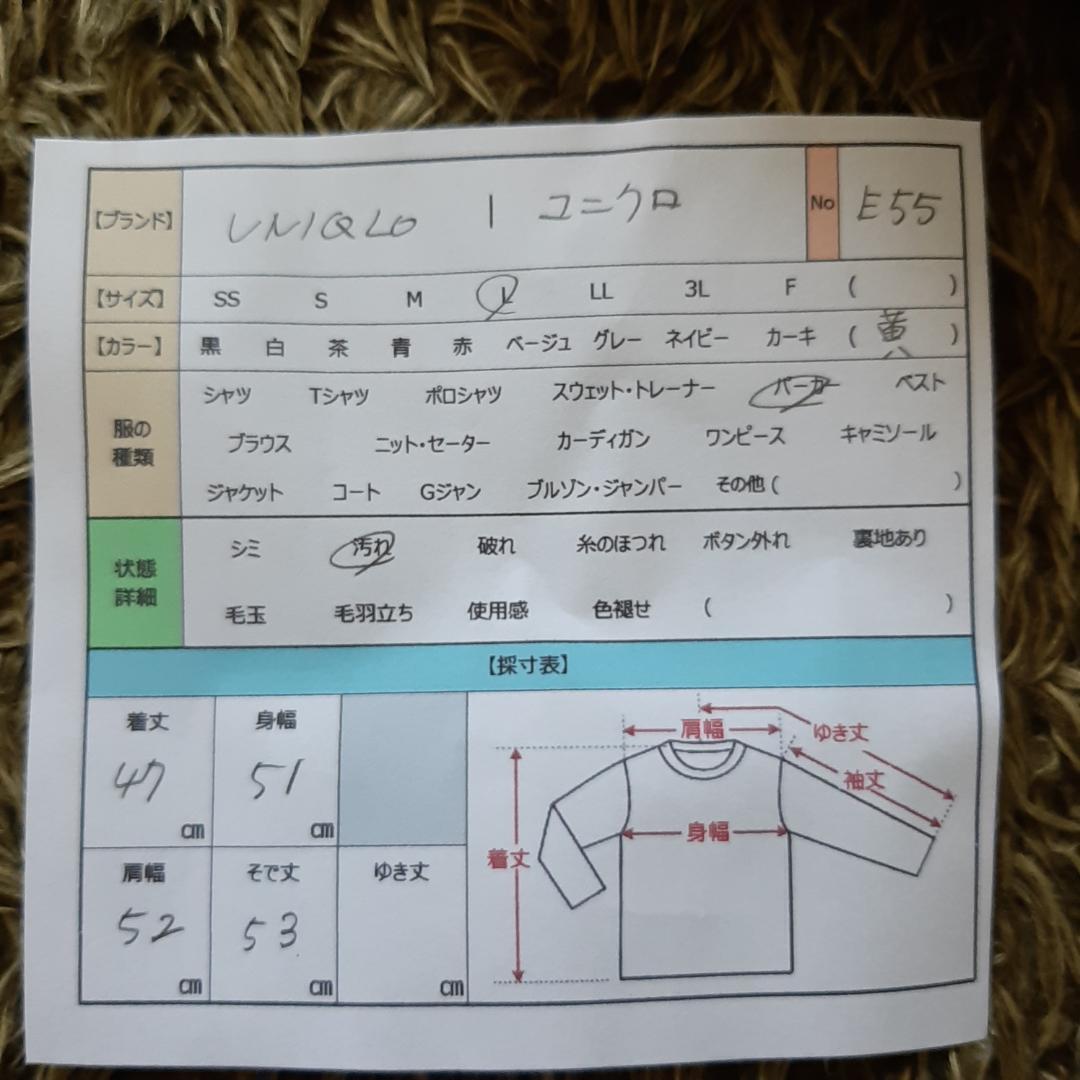 【ブランド】 UNIQLO | ユニクロ No E55
【サイズ】 SS S M L LL 3L F ( )
【カラー】 黒 白 茶 青 赤 ベージュ グレー ネイビー カーキ ( 黄 )
服の種類
シャツ Tシャツ ポロシャツ スウェット・トレーナー パーカー ベスト
ブラウス ニット・セーター カーディガン ワンピース キャミソール
ジャケット コート Gジャン ブルゾン・ジャンパー その他 ( )
状態詳細
シミ 汚れ 破れ 糸のほつれ ボタン外れ 裏地あり
毛玉 毛羽立ち 使用感 色褪せ ( )
【採寸表】
着丈 身幅
47 cm 51 cm
肩幅 そで丈 ゆき丈
52 cm 53 cm cm
肩幅
ゆき丈
袖丈
身幅
着丈